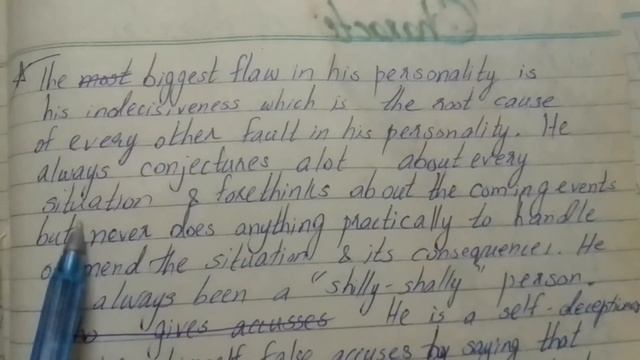 * The most biggest flaw in his personality is
his indecisiveness which is the root cause
of every other fault in his personality. He
always conjectures alot about every
situation & forethinks about the coming events
but never does anything practically to handle
mend the situation & its consequences. He
always been a "shilly-shally" person.
gives accusses He is a self-deceptions
false accuses by saying that